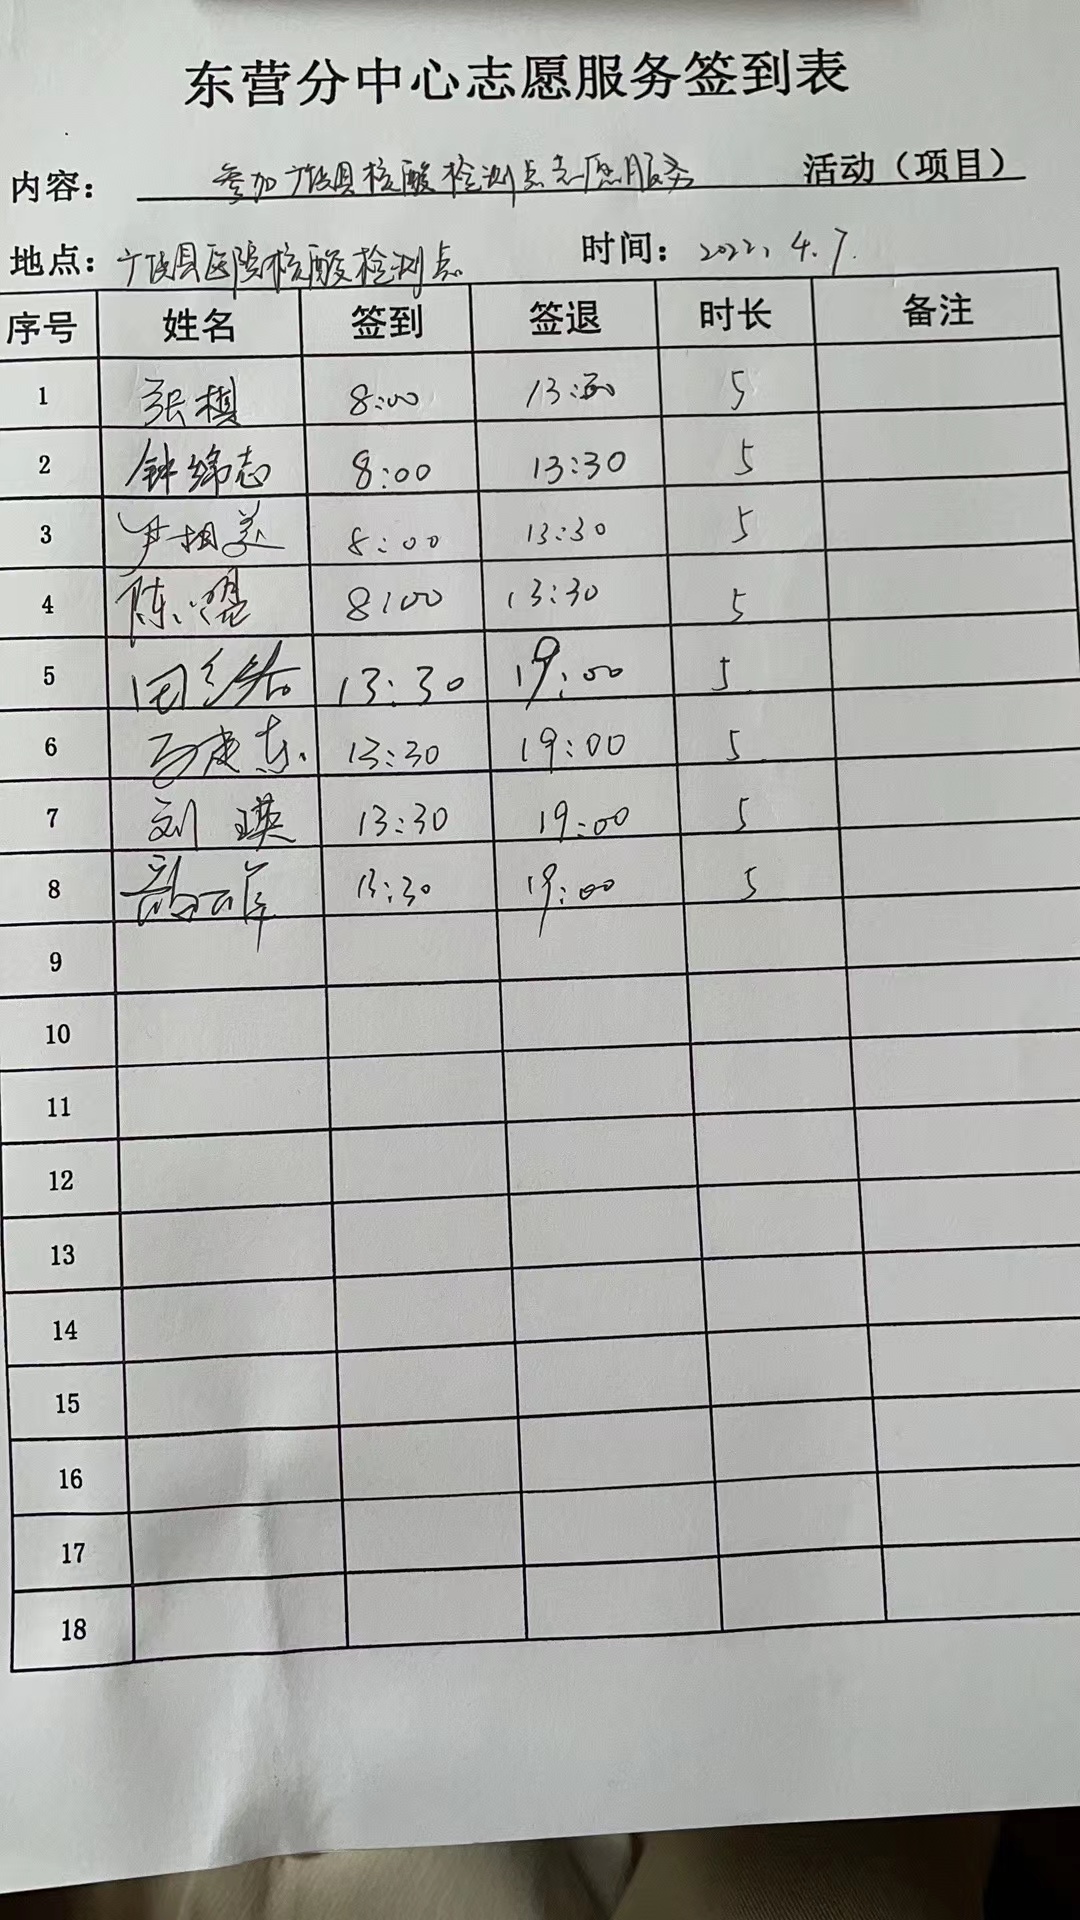 东营分中心志愿服务签到表
内容： 参加广饶县核酸检测点志愿服务 活动（项目）
地点：广饶县医院核酸检测点 时间：2022.4.7.
序号 姓名 签到 签退 时长 备注
1 张棋 8:00 13:30 5
2 钟绵志 8:00 13:30 5
3 尹相美 8:00 13:30 5
4 陈 8:00 13:30 5
5 13:30 19:00 5
6 13:30 19:00 5
7 刘瑛 13:30 19:00 5
8 13:30 19:00 5
9
10
11
12
13
14
15
16
17
18